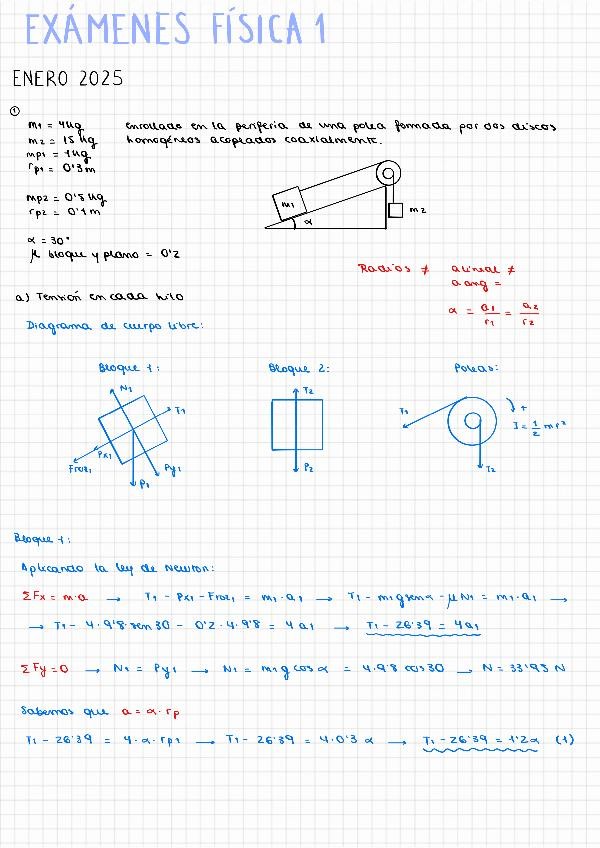 EXÁMENES FÍSICA 1
ENERO 2025
①
m1 = 4kg enrollado en la periferia de una polea formada por dos discos
m2 = 15 kg homogéneos acoplados coaxialmente.
mp1 = 1kg
rp1 = 0'3m
mp2 = 0'8 kg
rp2 = 0'1 m
m1
α
m2
α = 30°
μ bloque y plano = 0'2
Radios ≠ a lineal ≠
a ang =
α = a1/r1 = a2/r2
a) Tensión en cada hilo
Diagrama de cuerpo libre:
Bloque 1: Bloque 2: Poleas:
N1 T1 Px1 Froz1 Py1 P1
T2 P2
T1 T2 + I = 1/2 mr²
Bloque 1:
Aplicando la ley de Newton:
ΣFx = m·a → T1 - Px1 - Froz1 = m1·a1 → T1 - m1g senα - μN1 = m1·a1 →
→ T1 - 4·9'8·sen30 - 0'2·4·9'8 = 4a1 → T1 - 26'39 = 4a1
ΣFy = 0 → N1 = Py1 → N1 = m1g cosα = 4·9'8 cos30 → N = 33'95 N
Sabemos que a = α·rp
T1 - 26'39 = 4·α·rp1 → T1 - 26'39 = 4·0'3 α → T1 - 26'39 = 1'2α (1)